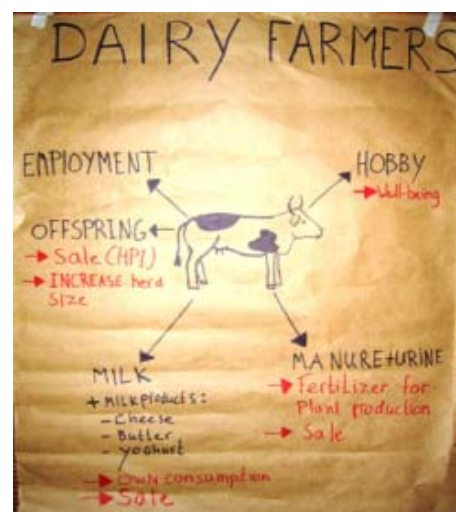 DAIRY FARMERS
EMPLOYMENT
HOBBY
→ Well-being
OFFSPRING
→ Sale (HPI)
→ INCREASE herd
size
MILK
+ MILKProducts:
- Cheese
- Butter
- Yoghurt
→ OWN consumption
→ Sale
MANURE+URINE
→ Fertilizer for
Plant production
→ Sale